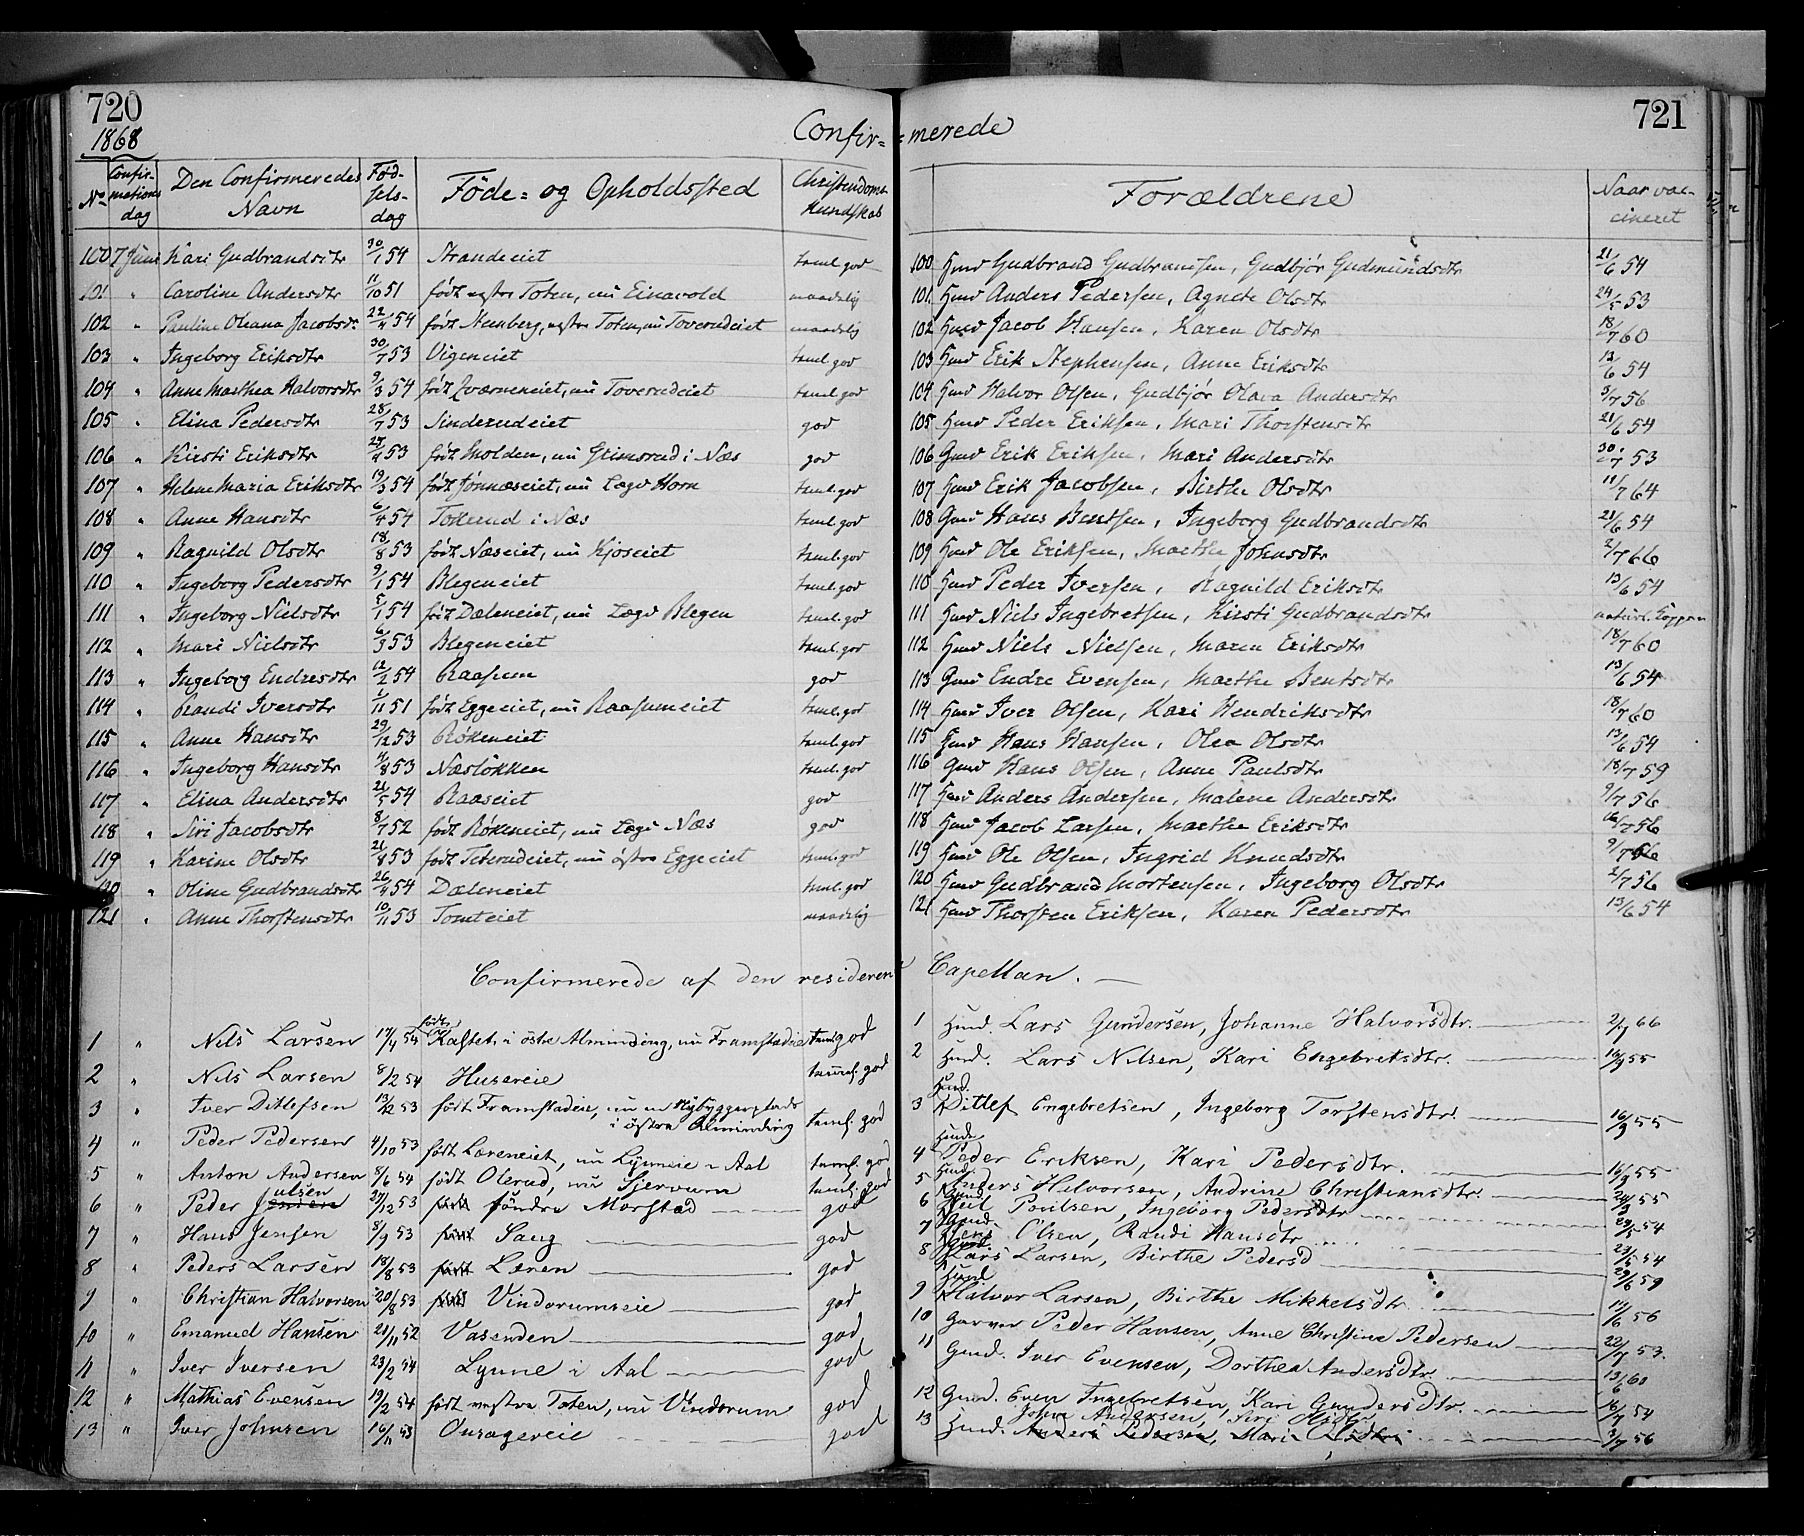 720
1868
Confir=
No
Confirmations dag
Den Confirmeredes Navn
Fødselsdag
Föde= og Opholdssted
Christendoms Kundskab
100 7 Juni Kari Gudbrandsdtr 30/1 54 Strandeiet taml. god
101 " Caroline Andersdtr 11/10 51 født vestre Toten, nu Einavold maadelig
102 " Pauline Oleana Jacobsdr 22/4 54 født Stenberg, vestre Toten, nu Toverudeiet maadelig
103 " Ingeborg Eriksdtr 30/7 53 Vigeneiet taml. god
104 " Anne Marthea Halvorsdtr 9/3 54 født Qværneneiet, nu Toverudeiet taml. god
105 " Elina Pedersdtr 28/7 53 Sinderudeiet god
106 " Kirsti Eriksdtr 53 født Molden, nu Grimsrud i Næs god
107 " Helene Maria Eriksdtr 19/3 54 født Jønnæseiet, nu Lægd Horn taml. god
108 " Anne Hansdtr 6/4 54 Tokerud i Næs taml. god
109 " Ragnild Olsdtr 18/8 53 født Næseiet, nu Kjoseiet taml. god
110 " Ingeborg Pedersdtr 9/1 54 Blegeneiet taml. god
111 " Ingeborg Nielsdtr 5/1 54 født Dæleneiet, nu Lægd Blegen taml. god
112 " Mari Nielsdtr 53 Blegeneiet taml. god
113 " Ingeborg Endresdtr 12/2 54 Raasum god
114 " Randi Iversdtr 1/11 51 født Eggeeiet, nu Raasumeiet taml. god
115 " Anne Hansdtr 29/12 53 Røkeneiet taml. god
116 " Ingeborg Hansdtr 4/8 53 Næsløkken taml. god
117 " Elina Andersdtr 21/5 54 Raaseiet god
118 " Siri Jacobsdtr 8/7 52 født Røkeneiet, nu Lægd Næs god
119 " Karine Olsdtr 21/8 53 født Teterudeiet, nu østre Eggeeiet taml. god
120 " Oline Gudbrandsdtr 26/4 54 Dæleneiet taml. god
121 " Anne Thorstensdtr 10/11 53 Tomteiet maadelig
Confirmerede af den resideren
1 " Nils Larsen 17/4 54 født Kastet i östre Alminding, nu Framstadeie taml god
2 " Nils Larsen 8/2 54 Husereie taml. god
3 " Iver Ditlefsen 13/12 53 født Framstadeie, nu en Nybyggerplads
i østre Alminding taml. god
4 " Peder Pedersen 4/10 53 født Læreneiet, nu Lynneie i Aal taml. god
5 " Anton Andersen 8/6 54 født Olerud, nu Sjervum taml. god
6 " Peder Julsen 27/12 53 født søndre Morstad god
7 " Hans Jensen 8/9 53 født Saug god
8 " Peders Larsen 18/8 53 født Læren god
9 " Christian Halvorsen 20/8 53 født Vindorumseie god
10 " Emanuel Hansen 21/11 52 Vasenden god
11 " Iver Iversen 23/2 54 Lynne i Aal god
12 " Mathias Evensen 19/2 54 født vestre Toten, nu Vindorum god
13 " Iver Johnsen 16/11 53 Onsagereie god
721
merede
Forældrene
Naar vaccineret
100 Hmd Gudbrand Gudbrandsen, Gudbjør Gudmundsdtr 21/6 54
101 Hmd Anders Pedersen, Agnete Olsdtr 24/5 53
102 Hmd Jacob Hansen, Karen Olsdtr 18/7 60
103 Hmd Erik Stephensen, Anne Eriksdtr 13/6 54
104 Hmd Halvor Olsen, Gudbjør Olava Andersdtr 9/7 56
105 Hmd Peder Eriksen, Mari Thorstensdtr 21/6 54
106 Gmd Erik Eriksen, Mari Andersdtr 30/7 53
107 Hmd Erik Jacobsen, Birthe Olsdtr 11/7 64
108 Gmd Hans Bentsen, Ingeborg Gudbrandsdtr 21/6 54
109 Hmd Ole Eriksen, Marthe Johnsdtr 2/7 66
110 Hmd Peder Iversen, Ragnild Eriksdtr 13/6 54
111 Hmd Niels Ingebretsen, Kirsti Gudbrandsdtr naturl. Kopper
112 Hmd Niels Nielsen, Maren Eriksdtr 18/7 60
113 Gmd Endre Evensen, Marthe Bentsdtr 13/6 54
114 Hmd Iver Olsen, Kari Hendriksdtr 18/7 60
115 Hmd Hans Hansen, Olea Olsdtr 13/6 54
116 Gmd Hans Olsen, Anne Paulsdtr 18/7 59
117 Hmd Anders Andersen, Malene Andersdtr 9/7 56
118 Hmd Jacob Larsen, Marthe Eriksdtr 16/7 56
119 Hmd Ole Olsen, Ingrid Knudsdtr 9/7 56
120 Hmd Gudbrand Mortensen, Ingeborg Olsdtr 2/7 56
121 Hmd Thorsten Eriksen, Karen Pedersdtr 13/6 54
Capellan.
1 Hmd. Lars Gundersen, Johanne Halvorsdtr. 2/7 66
2 Hmd. Lars Nilsen, Kari Engebretsdtr. 16/9 55
3 Hmd. Ditlef Engebretsen, Ingeborg Torstensdtr. 16/9 55
4 Hmd. Peder Eriksen, Kari Pedersdtr. 16/9 55
5 Hmd. Anders Halvorsen, Andrine Christiansdtr. 55
6 Gmd. Juel Poulsen, Ingeborg Pedersdtr 29/5 54
7 Gmd. Jens Olsen, Randi Hansdtr 23/5 54
8 Gmd. Lars Larsen, Birthe Pedersd 59
9 Hmd Halvor Larsen, Birthe Mikkelsdtr 56
10 Garver Peder Hansen, Anne Christine Pedersen 22/7 53.
11 Gmd. Iver Evensen, Dorthea Andersdtr. 13/6 60
12 Gmd. Even Ingebretsen, Kari Gundersdtr. 16/7 54
John Andersen, Siri
13 Hmd. Anders Pedersen, Mari Olsdtr. 3/7 56